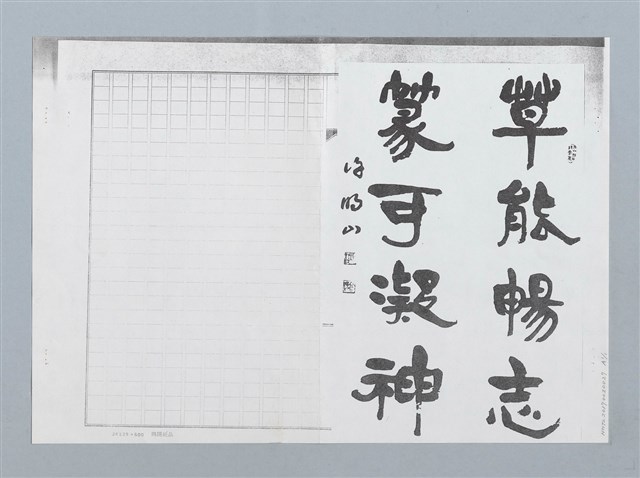 草能暢志
篆可凝神
許明山